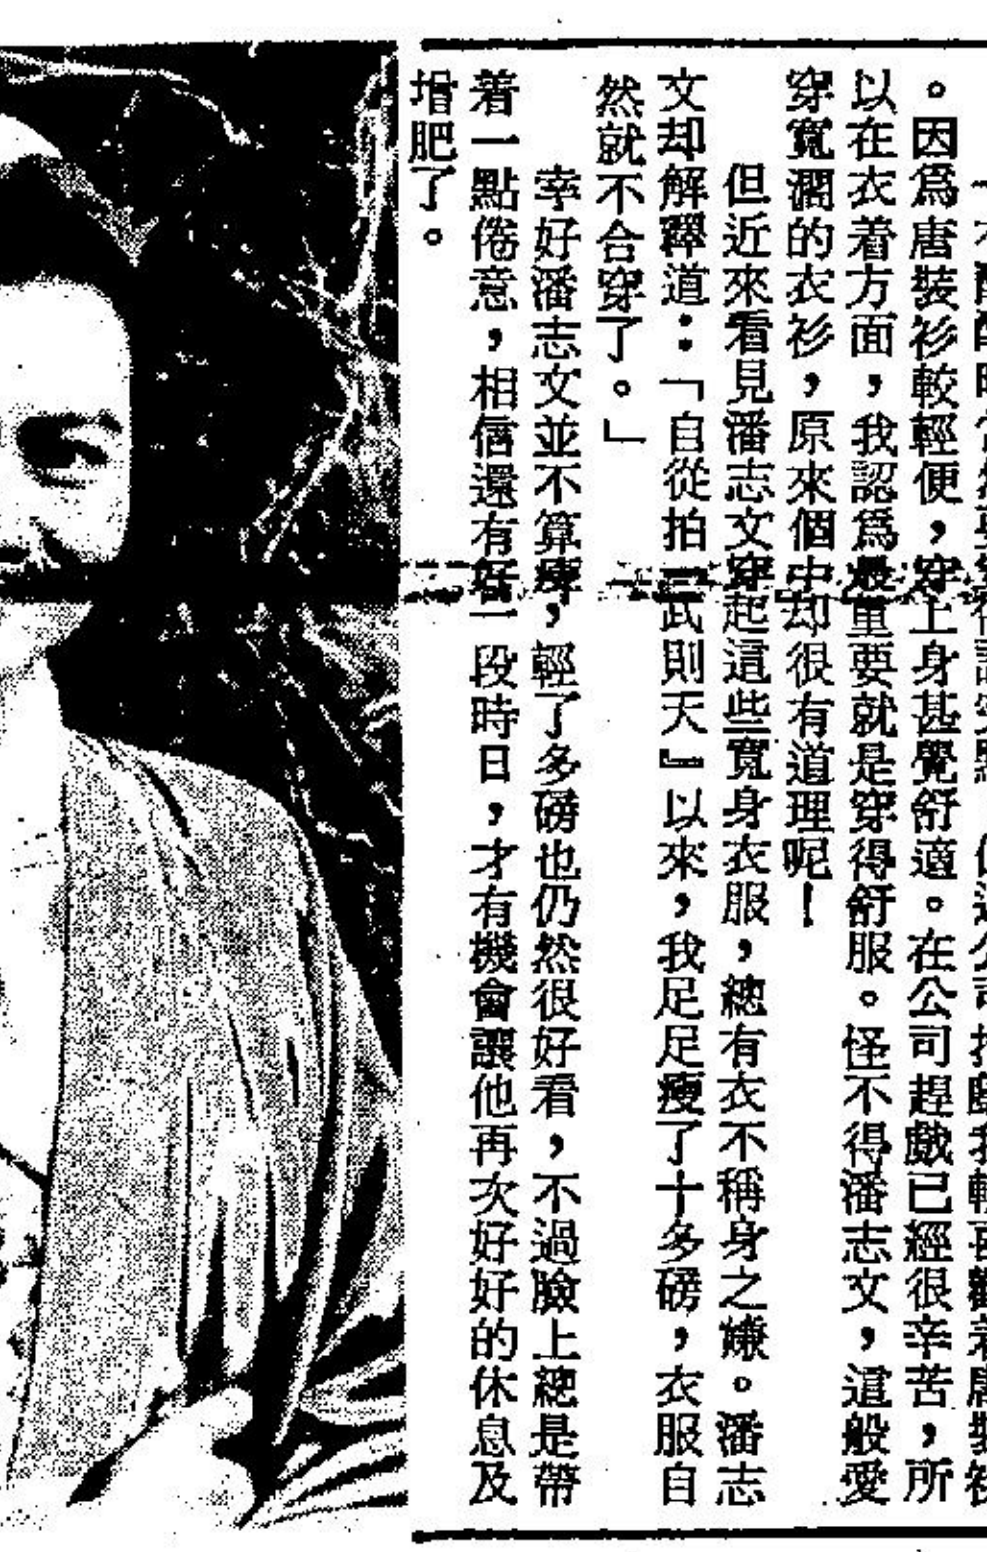 。因爲唐裝衫較輕便，穿上身甚覺舒適。在公司趕戲已經很辛苦，所
以在衣着方面，我認爲最重要就是穿得舒服。怪不得潘志文，這般愛
穿寬濶的衣衫，原來個中却很有道理呢！
但近來看見潘志文穿起這些寬身衣服，總有衣不稱身之嫌。潘志
文却解釋道：「自從拍『武則天』以來，我足足瘦了十多磅，衣服自
然就不合穿了。」
幸好潘志文並不算瘦，輕了多磅也仍然很好看，不過臉上總是帶
着一點倦意，相信還有好一段時日，才有機會讓他再次好好的休息及
增肥了。